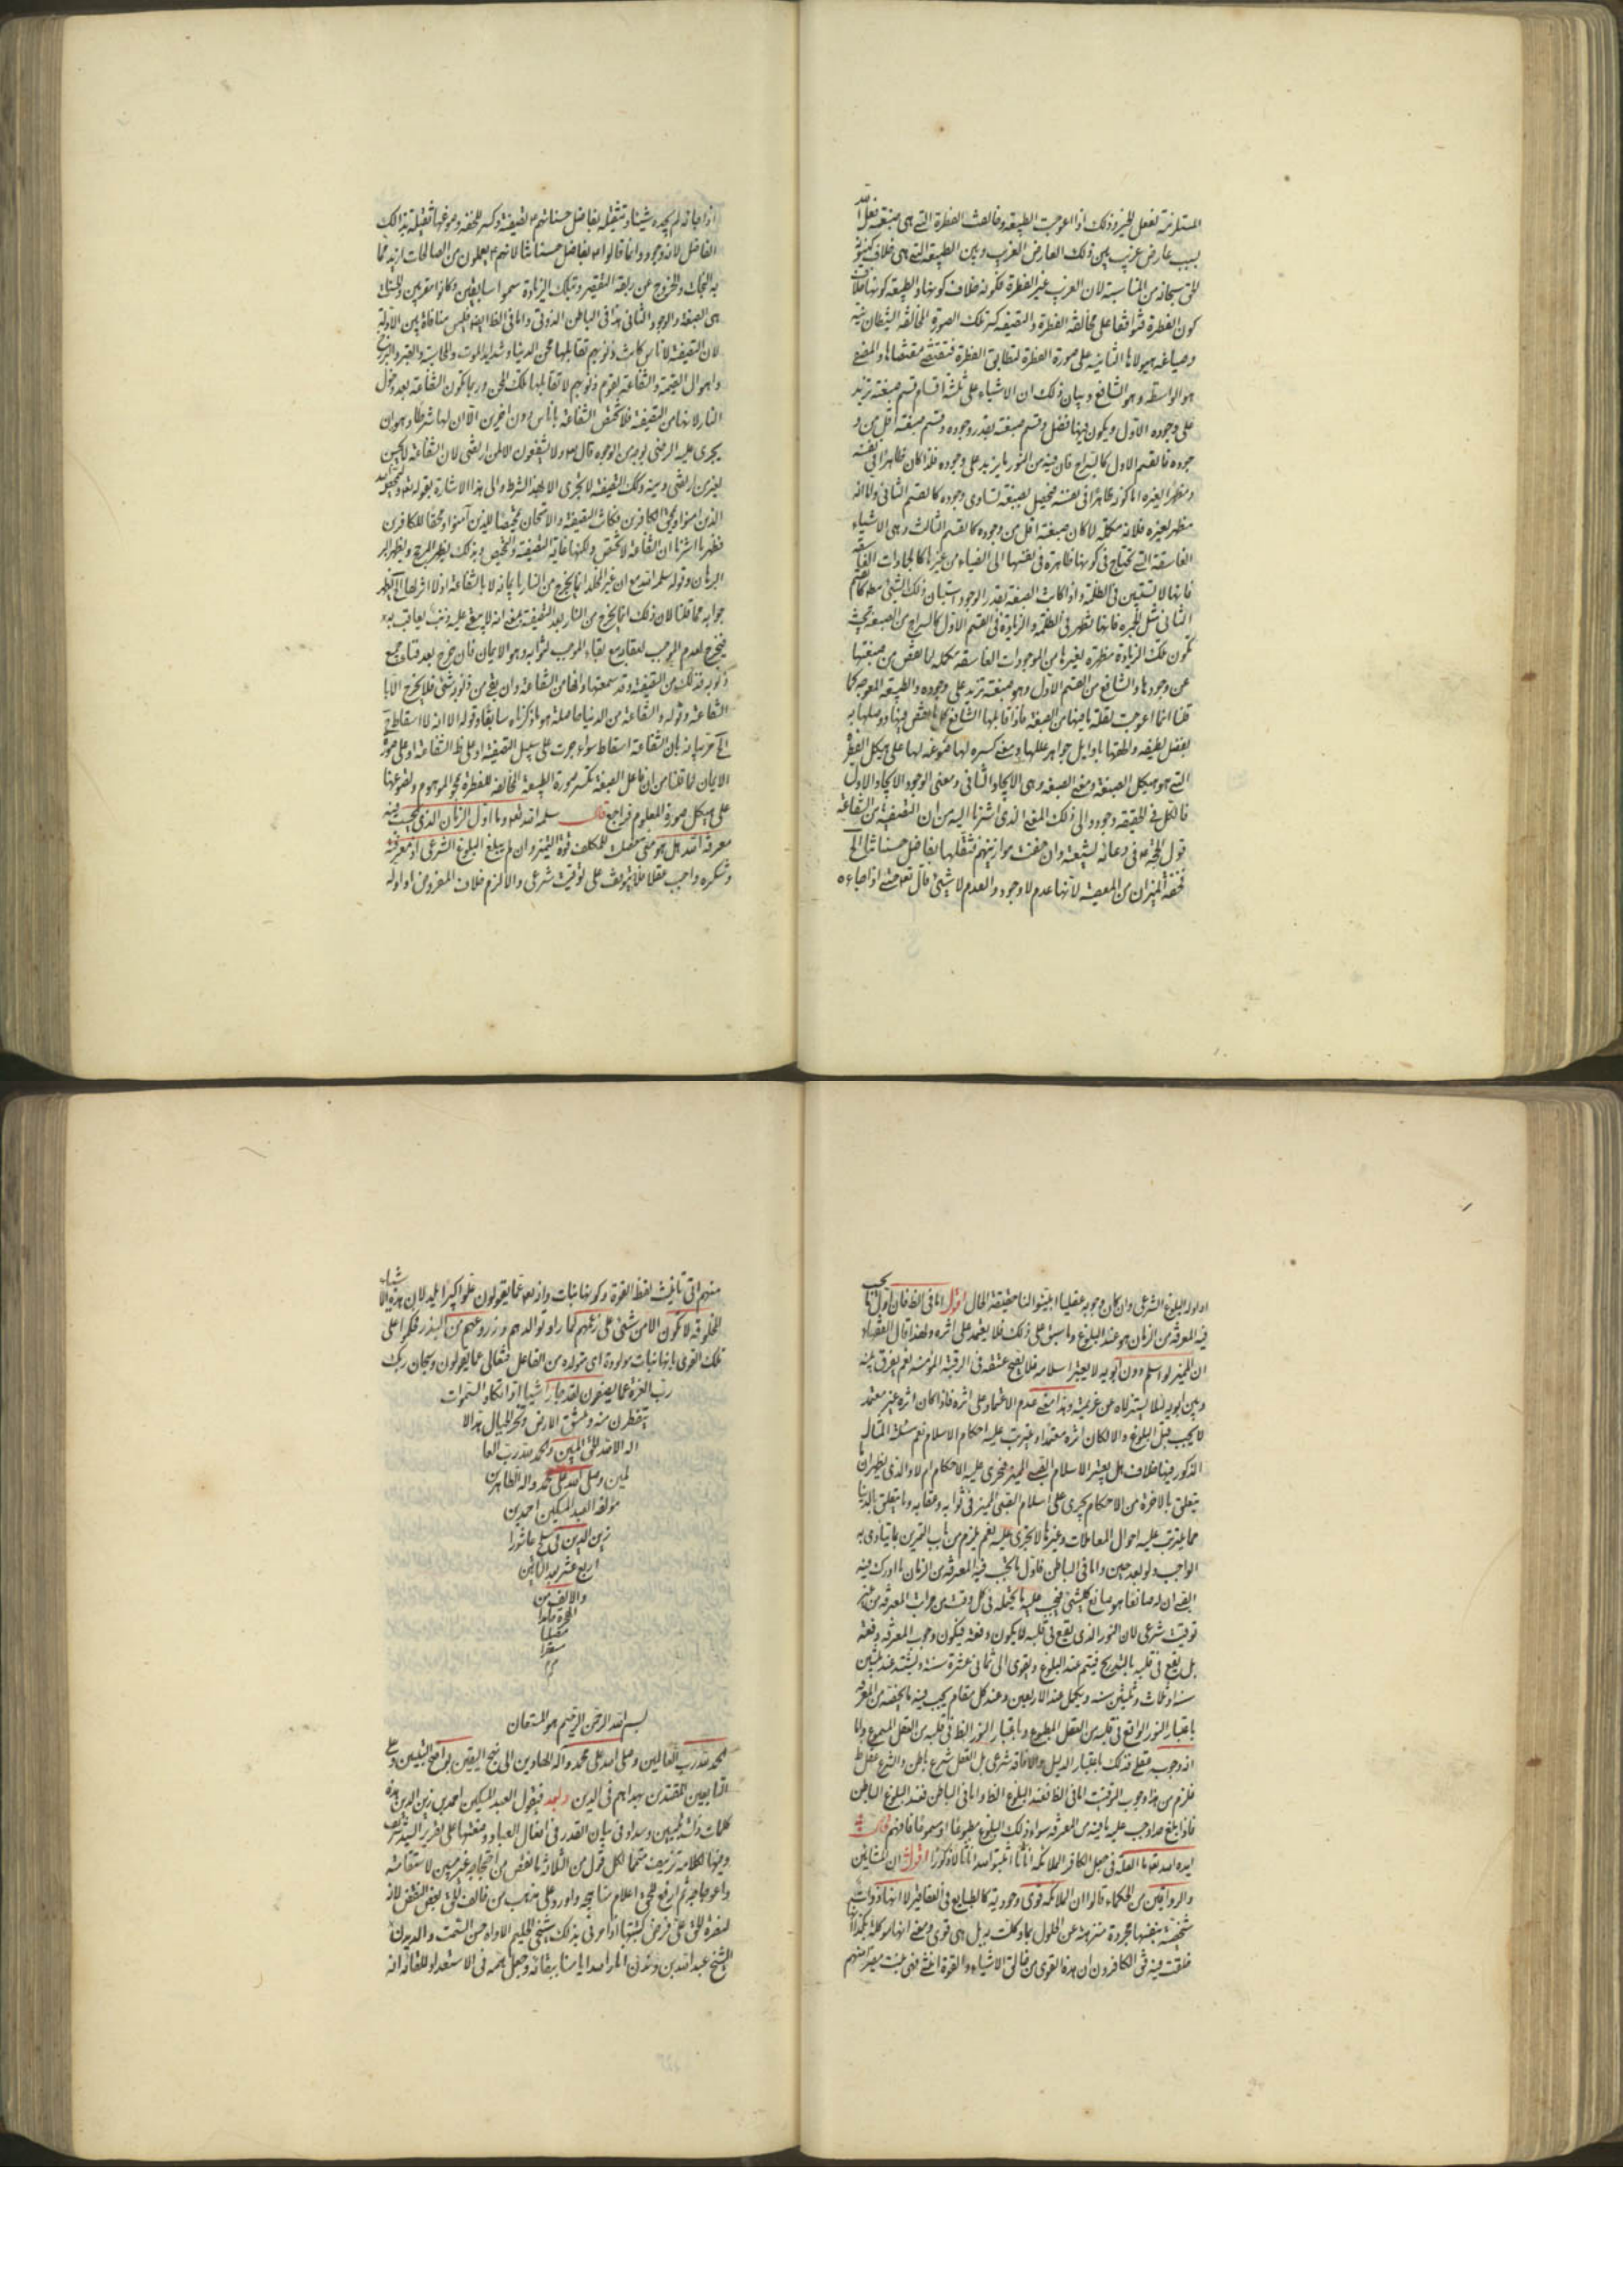 المستلزمة لفعل الخير وذلك اذا اعوجت الطبيعة وخالفت الفطرة التي هى صبغة فعل الله
بسبب عارض غريب بين ذلك العارض الغريب وبين الطبيعة التي هى خلاف
الحق سبحانه من المناسبة لان الغريب غير الفطرة فكونه خلاف كونها والطبيعة كونها خلاف
كون الفطرة فتوافقا على مخالفة الفطرة والتصفية كسر تلك الصورة المخالفة الشيطانية
وصياغة هيولاها الثانية على صورة الفطرة لتطابق الفطرة فتقتضي مقتضاها والمصفى
هو الواسطة وهو الشافع وبيان ذلك ان الاشياء على ثلثة اقسام قسم صبغته تزيد
على وجوده الاول ويكون فيها فضل وقسم صبغته بقدر وجوده وقسم صبغته اقل من و
جوده فالقسم الاول كالسراج فان فيه من النور ما يزيد على وجوده فلذا كان ظاهرا فى نفسه
ومظهرا لغيره اما كونه ظاهرا فى نفسه فيحصل بصبغة تساوى وجوده كالقسم الثانى واما انه
مظهر لغيره فلانه مكمل لما كان صبغته اقل من وجوده كالقسم الثالث وهى الاشياء
الغاسقة التي تحتاج فى كونها ظاهرة فى نفسها الى الضياء من غيرها كالجمادات الغاسقة
فانها لا تستبين فى الظلمة واذا كانت الصبغة بقدر الوجود استبان ذلك الشئ
الثانى مثل الجمرة فانها تظهر فى الظلمة والزيادة فى القسم الاول كالسراج من الصبغة بحيث
تكون تلك الزيادة مظهرة لغيرها من الموجودات الغاسقة مكملة لما نقص من صبغتها
عن وجودها والشافع من القسم الاول وهو صبغته تزيد على وجوده والطبيعة المعوجة كما
قلنا انما اعوجت لقلة ما فيها من الصبغة فاذا قابلها الشافع كمل ما نقص فيها ووصلها به
بفضل لطيفه والحقها باوايل جواهر عللها ومعنى كسره لها صوغه لها على هيكل الفطرة
التي هو هيكل الصبغة ومعنى الصبغة وهى الايجاد الثانى ومعنى الوجود الايجاد الاول
فالكل فى الحقيقة وجود والى ذلك المعنى الذى اشرنا اليه من ان التصفية من الشفاعة
قول الحجة ع فى دعائه لشيعته وان خفت موازينهم فثقلها بفاضل حسناتنا الخ
فخفة الميزان من المعصية لانها عدم لا وجود والعدم لا شيئ قال تعالى حتى اذا جاءه
اذا جاءه لم يجده شيئا وتثقيله بفاضل حسناتهم ع تصفيته وكسر للخفة وصوغها ثقيلة بذلك
الفاضل لانه وجود وانما قالوا ع بفاضل حسناتنا لانهم ع يعملون من الصالحات ازيد مما
به النجات والخروج عن ربقة التقصير وبتلك الزيادة سموا سابقين وكانوا مقربين والحسنات
هى الصبغة والوجود الثانى هذا فى الباطن الذوقى واما فى الظ ايضا فليس منافاة بين الادلة
لان التصفية لاناس كانت ذنوبهم تقابلها محن الدنيا وشدايد الموت والمحاسبة والقبر والبرزخ
واهوال القيمة والشفاعة لقوم ذنوبهم لا تقابلها تلك المحن وربما تكون الشفاعة بعد دخول
النار لانها من التصفية فلا تختص الشفاعة باناس دون اخرين الا ان لها شرطا وهو ان
يجرى عليه الرضى بوجه من الوجوه قال تعالى ولا يشفعون الا لمن ارتضى لان الشفاعة لا تحسن
لغير من ارتضى دينه وتلك التصفية لا تجرى الا بهذا الشرط والى هذا الاشارة بقوله تعالى وليمحص الله
الذين امنوا ويمحق الكافرين فكانت التصفية والامتحان تمحيصا للذين آمنوا ومحقا للكافرين
فظهر ما اشرنا ان الشفاعة لا تختص ولكنها غاية التصفية والتمحيص وبذلك يظهر المرجح ويظهر
البرهان وقوله سلمه الله مع ان غير المخلد انما يخرج من النار بايمانه لا بالشفاعة اذ لا اثر لها الخ يظهر
جوابه مما قلنا لان ذلك انما يخرج من النار بعد التصفية بمعنى انه لا يبقى عليه ذنب يعاقب به
فيخرج لعدم الموجب للعقاب مع بقاء الموجب لثوابه وهو الايمان فان خرج بعد فناء جميع
ذنوبه فذلك من التصفية وقد سمعتها وانها من الشفاعة وان بقى من ذنوبه شئ فلا يخرج الا با
الشفاعة وقوله والشفاعة من الدنيا حاصلة هو ما ذكرناه سابقا وقوله الا انه لا اسقاط ح
الخ مر بيانه بان الشفاعة اسقاط سواء جرت على سبيل التصفية او على ظ الشفاعة او على صورة
الايمان لما قلنا من ان فاعل الصبغة يكسر صورة الطبيعة المخالفة للفطرة بمحو الموهوم وتصوغها
على هيكل صورة المعلوم فراجع قال سلمه الله تعالى وما اول الزمان الذى يجب فيه
معرفة الله هل هو متى حصلت للمكلف قوة التميز وان لم يبلغ البلوغ الشرعى اذ معرفته
وشكره واجب عقلا فلا يتوقف على توقيت شرعى والا لزم خلاف المفروض او اوله
او اوله البلوغ الشرعى وان كان وجوبه عقليا ابينوا لنا حقيقة الحال اقول اما فى الظ فان اول ما يجب
فيه المعرفة من الزمان هو عند البلوغ وما سبق على ذلك فلا يعتمد على اثره ولهذا قال الفقهاء
ان المميز لو اسلم دون ابويه لا يعتبر اسلامه فلا يصح عتقه فى الرقبة المؤمنة نعم يفرق بينه
وبين ابويه لئلا يستزلاه عن عزيمته وهذا معنى عدم الاعتماد على اثره فاذا كان اثره غير معتمد
لا يجب قبل البلوغ والا لكان اثره معتمدا ويترتب عليه احكام الاسلام نعم مسئلة المسالة
المذكور فيها خلاف هل يعتبر الاسلام الصبى المميز فيجرى عليه الاحكام ام لا والذى يظهر ان ما
يتعلق بالاخرة من الاحكام يجرى على اسلام الصبى المميز فى ثوابه وعقابه وما يتعلق بالدنيا
مما يترتب عليه احوال المعاملات وغيرها لا يجرى عليه نعم يلزم من باب التمرين ما يتادى به
الواجب ولو بعد حين واما فى الباطن فاول ما يجب فيه المعرفة من الزمان ما ادرك فيه
الصبى ان له صانعا هو صانع كل شئ فيجب عليه ما يحتمله فى كل وقت من مراتب المعرفة من غير
توقيت شرعى لان النور الذى يقع فى قلبه لا يكون دفعة فيكون وجوب المعرفة دفعة
بل يقع فى قلبه بالتدريج فيتم عند البلوغ ويقوى الى ثمانى عشرة سنة ويشتد عند ثلثين
سنة او ثلاث وثلثين سنة ويكمل عند الاربعين وعند كل مقام يجب فيه ما يخصه من المعرفة
باعتبار النور الواقع فى قلبه من العقل المطبوع وباعتبار النور الظ فى قلبه من العقل المسموع واما
انه وجوب عقلى فذلك باعتبار الدليل والا فانه شرعى بل العقل شرع باطن والشرع عقل ظ
فلزم من هذا وجوب التوقيت اما فى الظ فعند البلوغ الظ واما فى الباطن فعند البلوغ الباطن
فاذا بلغ حدا وجب عليه ما فيه من المعرفة سواء ذلك البلوغ مطبوعا او مسموعا فافهم قال
ايده الله تعالى ما العلة فى جعل الكافر الملائكة اناثا اثبتوا لله اناثا لا ذكورا اقول ان المشائين
والرواقين من الحكماء قالوا ان الملائكة قوى وجودية كالطبايع فى العقاقير لا انها ذوات
شخصية بنفسها مجردة منزهة عن الحلول بما وكلت به بل هى قوى ومعنى انها موكلة بكذا انها
خلقت فيه فى الكافرون ان هذه القوى من خالق الاشياء والقوة انثى فهى بنت مصيرا منهم
منهم الى تانيث لفظ القوة وكونها نبات وانه تعالى عما يقولون علوا كبيرا تليد لان هذه الاشياء
المخلوقة لا تكون الا من شئ على زعمهم كما راوا توالدهم وزروعهم من البذر فحكموا على
تلك القوى بانها بنات مولودة اى متولدة من الفاعل فتعالى عما يقولون وسبحان ربك
رب العزة عما يصفون لقد جاؤا شيئا ادا تكاد السموات
يتفطرن منه وتنشق الارض وتخر الجبال هدا لا
اله الا الله الحق المبين والحمد لله رب العا
لمين وصلى الله على محمد واله الطاهرين
مؤلفه العبد المسكين احمد بن
زين الدين فى سلخ عاشورا
اربع عشر بعد المأتين
والالف من
الهجرة حامدا
مصليا
مستغفرا
م
بسم الله الرحمن الرحيم هو المستعان
الحمد لله رب العالمين وصلى الله على محمد واله الهادين الى نهج اليقين بواضح التبيين وعلى
التابعين المقتدين بهداهم فى الدين وبعد فيقول العبد المسكين احمد بن زين الدين هذه
كلمات وسداد فى بيان القدر فى افعال العباد وضعتها على تقرير السيد شريف
ومنها لكلامه تزييف متمما لكل قول من الثلاثة ما نقص من احتجاجه غير مبين لاستقامته
واعوجاجه ثم ارفع للحق اعلام منهاجه واورد على مذهب من خالف الحق بعض النقض لانه
لنصرة الحق على فرض كتبتها اذ امرنى بذلك شيخى الحليم الاواه حسن السمت والديدن
الشيخ عبد الله بن دندن امد الله ايامنا ببقائه وجعل همه فى الاستعداد للقائه انه